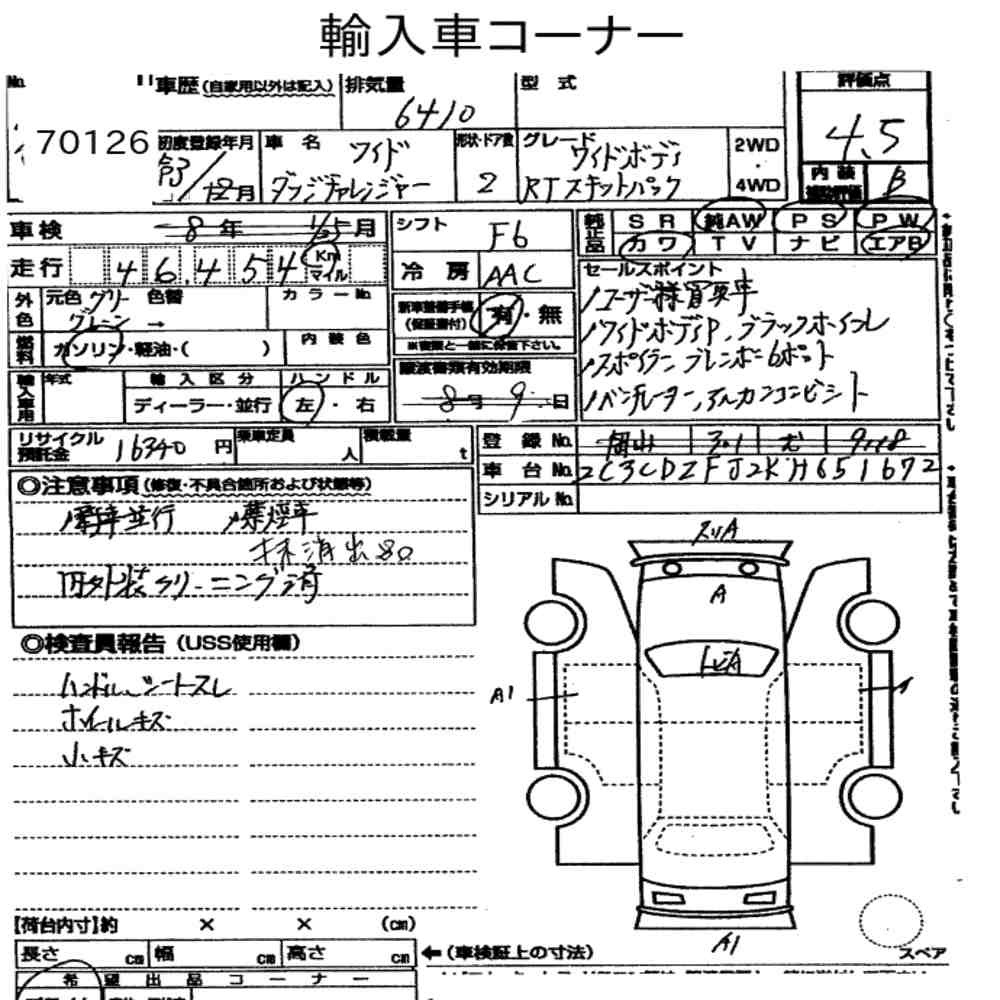 輸入車コーナー
No. 車歴(自家用以外は記入) 排気量 6410 型式 評価点 4.5
70126
初度登録年月 車名 ワイド ダッジチャレンジャー 形状・ドア数 2 グレード ワイドボディ RTスキャットパック 2WD・4WD
12月
内装 補助評価 B
車検 8年 月 シフト F6 純正品 SR 純AW PS PW
カワ TV ナビ エアB
走行 46,454 Km マイル 冷房 AAC
セールスポイント
外色 元色 グリーン 色替 カラーNo.
新車整備手帳(保証書付) 有・無
ユーザー様買取車
※書類と一緒に保管下さい。
ワイドボディP、ブラックホイール
燃料 ガソリン・軽油・( ) 内装色
スポイラー ブレンボー6ポット
譲渡書類有効期限
輸入車用 年式 輸入区分 ハンドル
8月 9 日
ベンチレーター、アルカンコンビシート
ディーラー・並行 左・右
リサイクル預託金 16340円 乗車定員 人 積載量 t
登録No. 岡山 301 む 9118
車台No. 2C3CDZFJ2KH651672
シリアルNo.
◎注意事項(修復・不具合箇所および状態等)
並行 禁煙車
抹消出80
内外装クリーニング済
◎検査員報告(USS使用欄)
ハンドル、シートスレ
ホイールキズ
小キズ
スリA
A
トビA
A1
A1
スペア
【荷台内寸】約 × × (cm)
長さ cm 幅 cm 高さ cm ←(車検証上の寸法)
希望出品コーナー